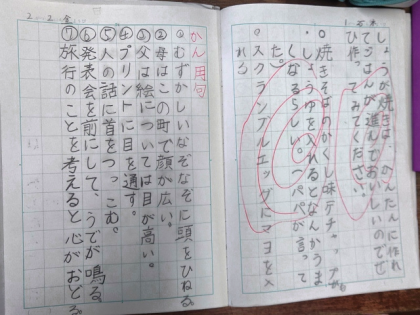 一.三.木
しょうが焼きは、かんたんに作れ
てごはんが進んでおいしいのでぜ
ひ作ってみてください。
◦焼きそばのかくし味でケチャップ
しょうゆを入れるとなんかうま
くなるらしい。パパが言って
た。
◦スクランブルエッグにマヨを
れる
二.二.金.
かん用句
①むずかしいなぞなぞに頭をひねる
②母はこの町で顔が広い。
③父は絵については目が高い。
④プリントに目を通す。
⑤人の話に首をつっこむ。
⑥発表会を前にして、うでが鳴る
⑦旅行のことを考えると心がおどる